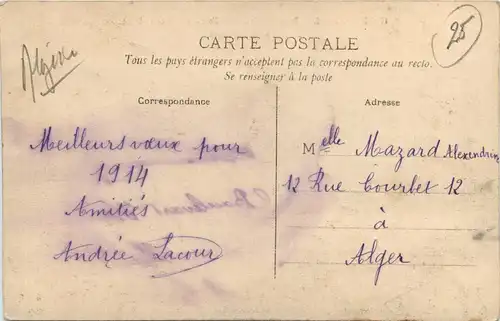 Algérie
25
CARTE POSTALE
Tous les pays étrangers n'acceptent pas la correspondance au recto.
Se renseigner à la poste
Correspondance
Meilleurs vœux pour
1914
Amitiés
Andrée Lacour
Adresse
Melle Mazard Alexandrine
12 Rue Courbet 12
à
Alger